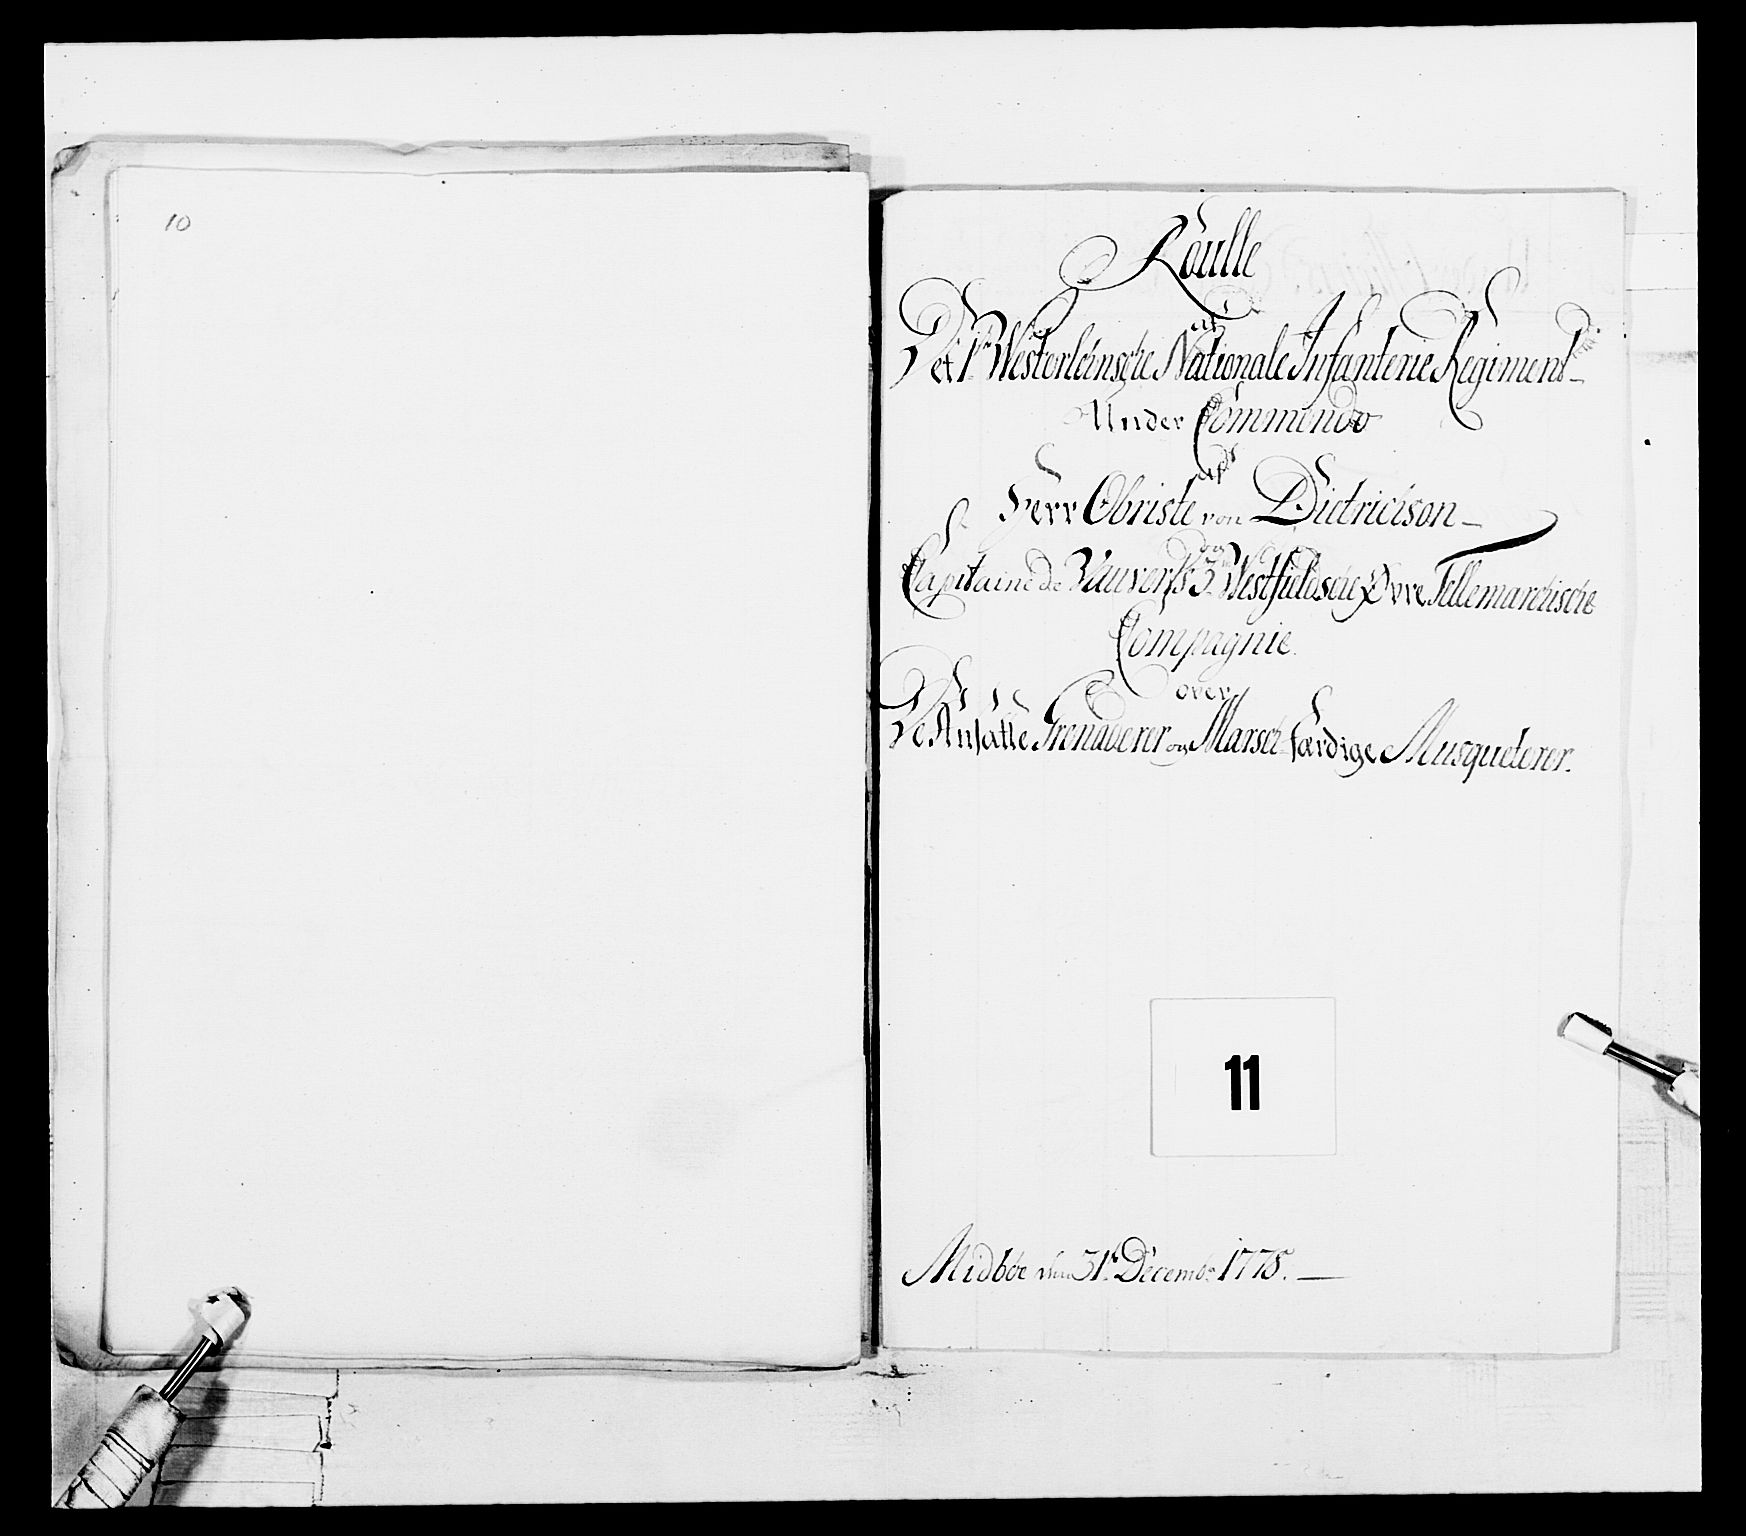 10
Roulle
af
Det 1te Westerlehnsche Nationale Infanterie Regiment
Under Commando
af
Herr Obriste von Dietrichson
og
Capitaine de 3 Westfieldsche Øvre Tellemarchische
Compagnie.
over
De Ansatte Grenaderer og Marsch færdige Musqueterer.
11
Midbøe den 31te Decembr 1778.